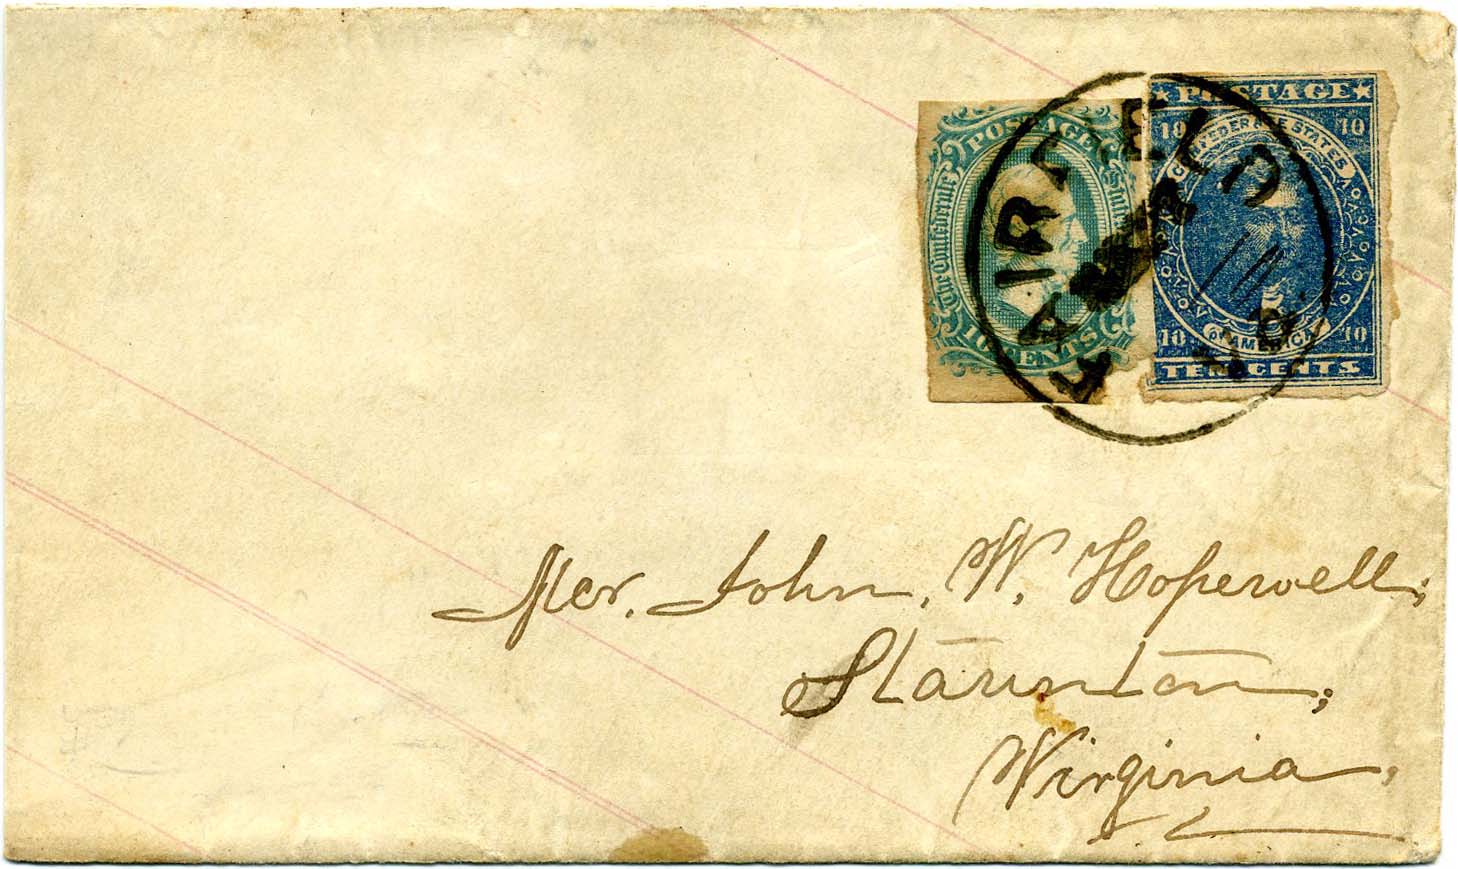 POSTAGE
The Confederate States
10 CENTS
POSTAGE
10 10
CONFEDERATE STATES
OF AMERICA
10 10
TEN CENTS
FAIRFIELD
Va.
10
Mr. John, W. Hopewell;
Staunton;
Virginia,